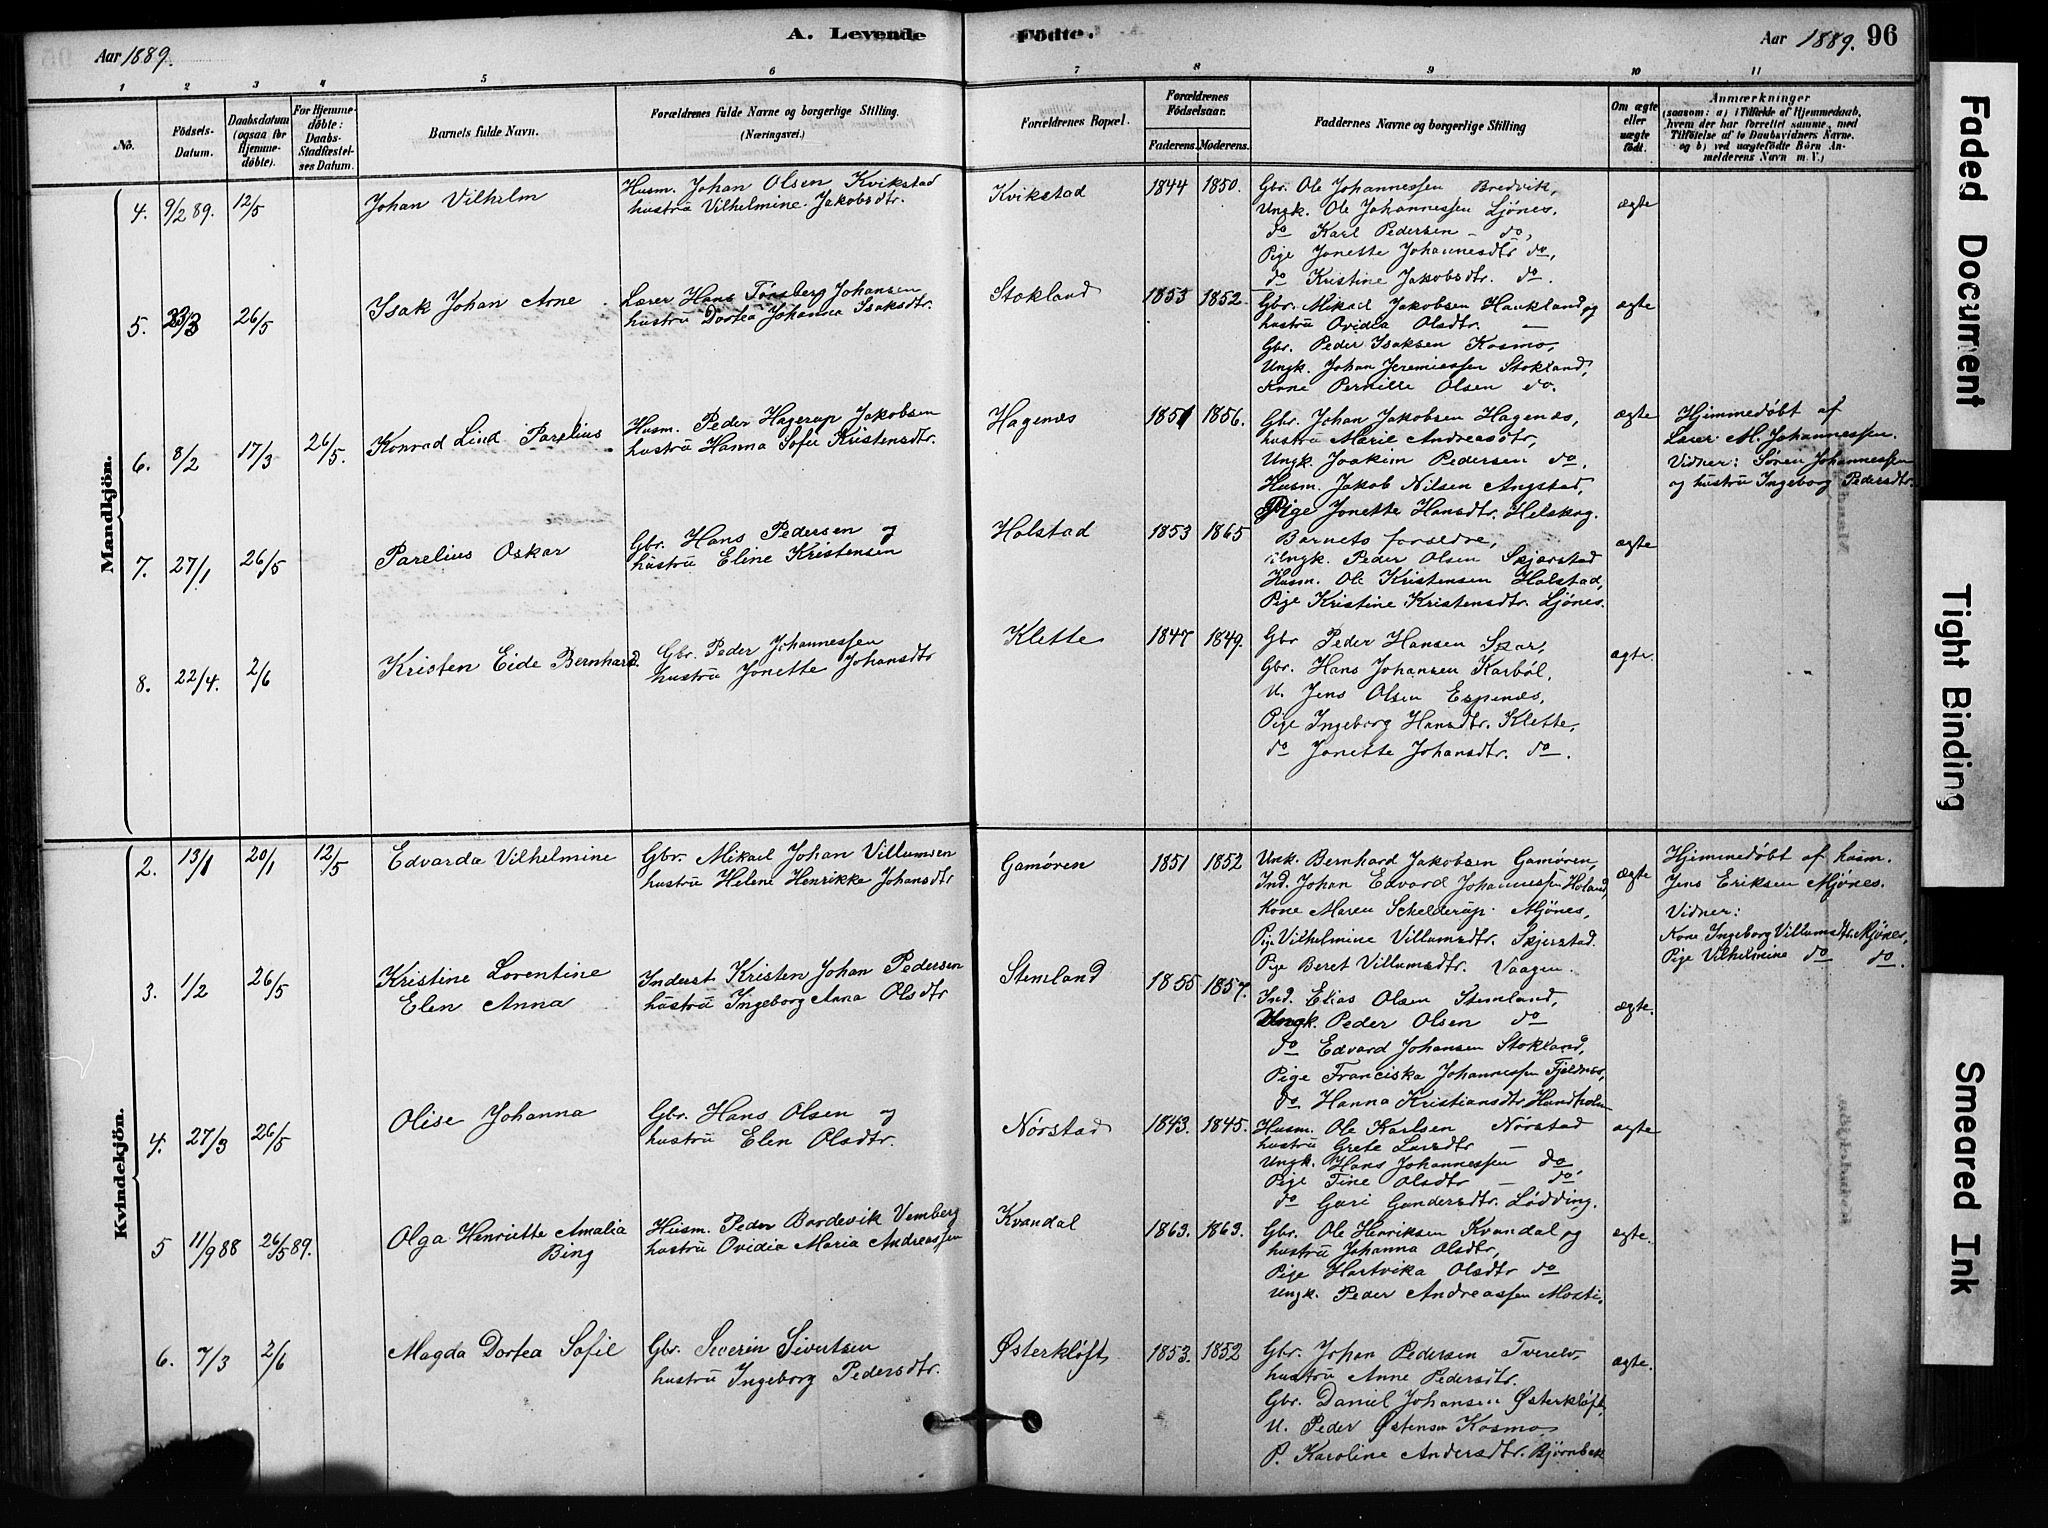 Aar 1889.
A. Levende Födte.
Aar 1889. 96
1 2 3 4 5 6 7 8 9 10 11
No.
Födsels-Datum.
Daabsdatum (ogsaa for Hjemme-døbte).
For Hjemme-døbte: Daabs-Stadfæstel-ses Datum.
Barnets fulde Navn.
Forældrenes fulde Navne og borgerlige Stilling. (Næringsvei.)
Forældrenes Bopæl.
Forældrenes Födselsaar.
Faderens. Moderens.
Faddernes Navne og borgerlige Stilling
Om ægte eller uægte født.
Anmærkninger
(saasom: a) i Tilfælde af Hjemmedaab, hvem der har forrettet samme, med Tilføielse af to Daabsvidners Navne. og b) ved uægtefødte Börn An-melderens Navn m. V.)
Mandkjön.
4. 9/2 89. 12/5 Johan Vilhelm
Husm. Johan Olsen Kvikstad
hustru Vilhelmine Jakobsdtr.
Kvikstad 1844 1850.
Gbr. Ole Johannessen Bredvik,
Ungk. Ole Johannessen Ljönes,
do Karl Pedersen - do,
Pige Jonette Johannesdtr do,
do Kristine Jakobsdtr. do.
ægte
5. 23/3 26/5 Isak Johan Arne
Lærer Hans Tørsberg Johansen
hustru Dortea Johanna Isaksdtr.
Stokland 1853 1852.
Gbr. Mikael Jakobsen Haukland og
hustru Ovidia Olsdtr. —
Gbr. Peder Isaksen Kosmo,
Ungk. Johan Jeremiassen Stokland,
Kone Pernille Olsen do.
ægte
6. 8/2 17/3 26/5. Konrad Lind Parelius
Husm. Peder Hagerup Jakobsen
hustru Hanna Sofie Kristensdtr.
Hagenæs 1851 1856.
Gbr. Johan Jakobsen Hagenæs,
hustru Marie Andreasdtr,
Ungk. Joakim Pedersen do,
Husm. Jakob Nilsen Angstad,
Pige Jonette Hansdtr. Helskog.
ægte
Hjemmedöbt af
Lærer M. Johannessen.
Vidner: Sören Johannessen
og hustru Ingeborg Pedersdtr.
7. 27/1 26/5 Parelius Oskar
Gbr. Hans Pedersen og
hustru Eline Kristensen
Holstad 1853 1865
Barnets forældre,
Ungk. Peder Olsen Skjerstad
Husm. Ole Kristensen Holstad,
Pige Kristine Kristensdtr. Ljönes.
ægte
8. 22/4. 2/6 Kristen Eide Bernhard.
Gbr. Peder Johannessen
hustru Jonette Johansdtr
Klette 1847 1849.
Gbr Peder Hansen
Gbr. Hans Johansen Karböl,
U. Jens Olsen Espenæs,
Pige Ingeborg Hansdtr. Klette,
do Jonette Johansdtr. do.
ægte.
Kvindekjön.
2. 13/1 20/1 12/5 Edvarda Vilhelmine
Gbr. Mikael Johan Villumsen
hustru Helene Henrikke Johansdtr
Gamøren 1851 1852
Unk. Bernhard Jakobsen Gamøren,
Ind. Johan Edvard Johannessen Holand,
Kone Maren Schelderup Mjönes,
Pige Vilhelmine Villumsdtr. Skjerstad.
Pige Beret Villumsdtr. Vaagan.
ægte
Hjemmedöbt af husm.
Jens Eriksen Mjönes.
Vidner:
Kone Ingeborg Villumsdtr. Mjönes,
Pige Vilhelmine do do.
3. 1/2 26/5 Kristine Lorentine
Elen Anna
Inderst Kristen Johan Pedersen
hustru Ingeborg Anna Olsdtr
Stemland 1855 1857.
Ind. Elias Olsen Stemland,
Ungk. Peder Olsen do
do Edvard Johansen Stokland,
Pige Franciska Johannessen Fjeldnes,
do Hanna Kristiansdtr. Hundholm
ægte.
4. 27/3 26/5 Olise Johanna
Gbr. Hans Olsen og
hustru Elen Olsdtr.
Nørstad 1843. 1845.
Husm. Ole Karlsen Nørstad
hustru Grete Larsdtr —
Ungk. Hans Johannessen do
Pige Tine Olsdtr — do,
do Guri Gundersdtr. Lødding.
ægte
5 11/9 88 26/5 89. Olga Henriette Amalia
Bing
Husm. Peder Bardevik Vemberg
hustru Ovidia Maria Andreassen
Kvandal 1863. 1863.
Gbr. Ole Henriksen Kvandal og
hustru Johanna Olsdtr,
Pige Hartvika Olsdtr do
Ungk. Peder Andreassen Mosti.
ægte.
6. 7/3 2/6 Magda Dortea Sofie
Gbr. Severin Sivertsen
hustru Ingeborg Pedersdtr.
Østerkløft 1853. 1852
Gbr. Johan Pedersen Tverelv,
hustru Anne Pedersdtr.
Gbr. Daniel Johansen Østerkløft,
U. Peder Østensen Kosmo
P. Karoline Andersdtr. Bjørnbak
ægte.
Faded Document
Tight Binding
Smeared Ink